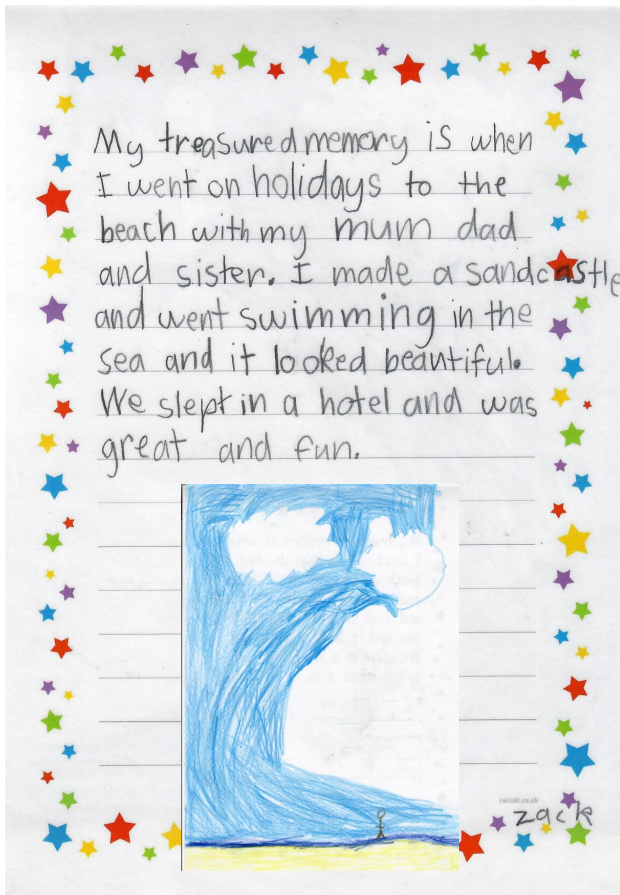 My treasured memory is when
I went on holidays to the
beach with my mum dad
and sister. I made a sandcastle
and went swimming in the
sea and it looked beautiful.
We slept in a hotel and was
great and fun.
twinkl.co.uk
zack